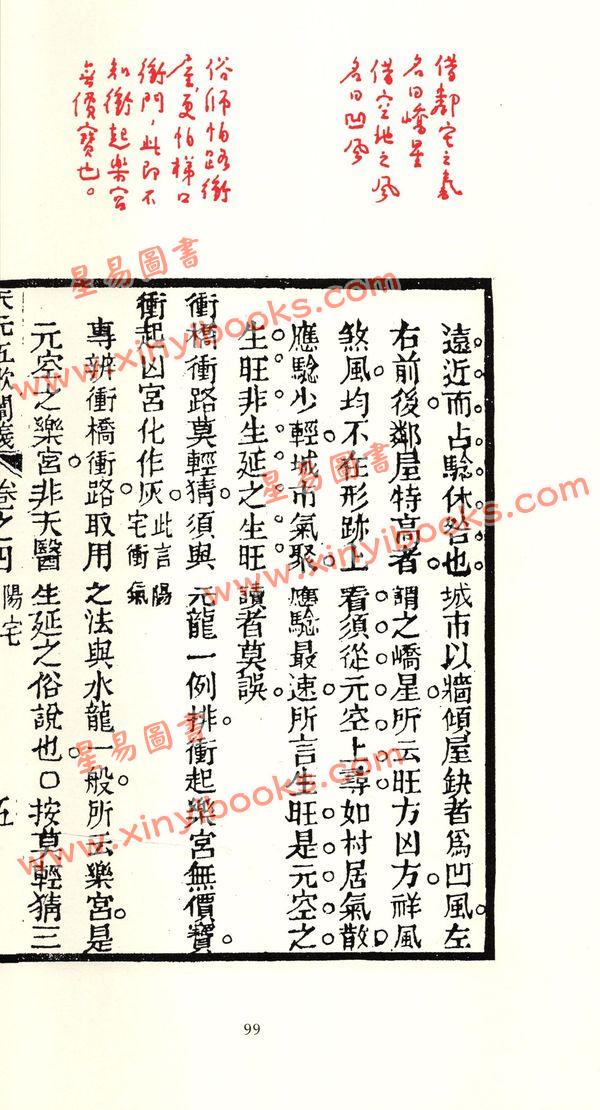 借鄰宅之氣
名曰嶠星
借空地之風
名曰凹風
俗師怕路衝
屋更怕梯口
衝門，此即不
知衝起樂宮
無價寶也。
遠近而占驗休咎也城市以牆傾屋缺者為凹風左
右前後鄰屋特高者謂之嶠星所云旺方凶方祥風
煞風均不在形跡上看須從元空上尋如村居氣散
應驗少輕城市氣聚應驗最速所言生旺是元空之
生旺非生延之生旺讀者莫誤
衝橋衝路莫輕猜須與元龍一例排衝起樂宮無價寶
衝起凶宮化作灰此言陽宅衝氣
專辨衝橋衝路取用之法與水龍一般所云樂宮是
元空之樂宮非天醫生延之俗說也〇按莫輕猜三
天元五歌闡義 卷之四 陽宅 五
99
星易圖書
www.xinyibooks.com
星易圖書
www.xinyibooks.com
星易圖書
www.xinyibooks.com
星易圖書
www.xinyibooks.com